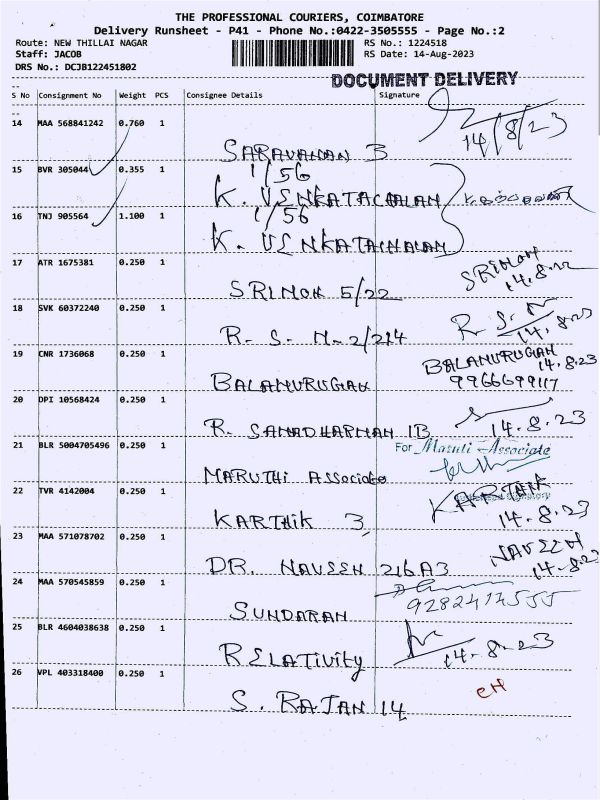 THE PROFESSIONAL COURIERS, COIMBATORE
Delivery Runsheet - P41 - Phone No.:0422-3505555 - Page No.:2
Route: NEW THILLAI NAGAR RS No.: 1224518
Staff: JACOB RS Date: 14-Aug-2023
DRS No.: DCJB122451802
DOCUMENT DELIVERY
S No Consignment No Weight PCS Consignee Details Signature
14 MAA 568841242 0.760 1
14/8/23
SARAVANAN 3
15 BVR 305044 0.355 1
1/56
K. VENKATACHALAM
16 TNJ 905564 1.100 1
1/56
K. VENKATACHALAM
17 ATR 1675381 0.250 1
SRIMOH
14.8.
SRIMOH 5/22
18 SVK 60372240 0.250 1
R. S. M
14.8.23
R. S. M-2/214
19 CNR 1736068 0.250 1
BALAMURUGAN 14.8.23
9966699117
BALAMURUGAN
20 DPI 10568424 0.250 1
14.8.23
R. SAMADHARMAN 1B
21 BLR 5004705496 0.250 1
For Maruti Associate
MARUTHI Associate
22 TVR 4142004 0.250 1
KARTHIK
14.8.23
KARTHIK 3
23 MAA 571078702 0.250 1
NAVEEN
14.8.23
DR. NAVEEN 216A3
24 MAA 570545859 0.250 1
9282414555
SUNDARAM
25 BLR 4604038638 0.250 1
14.8.23
RELATIVITY
26 VPL 403318400 0.250 1
CH
S. RAJAN 14